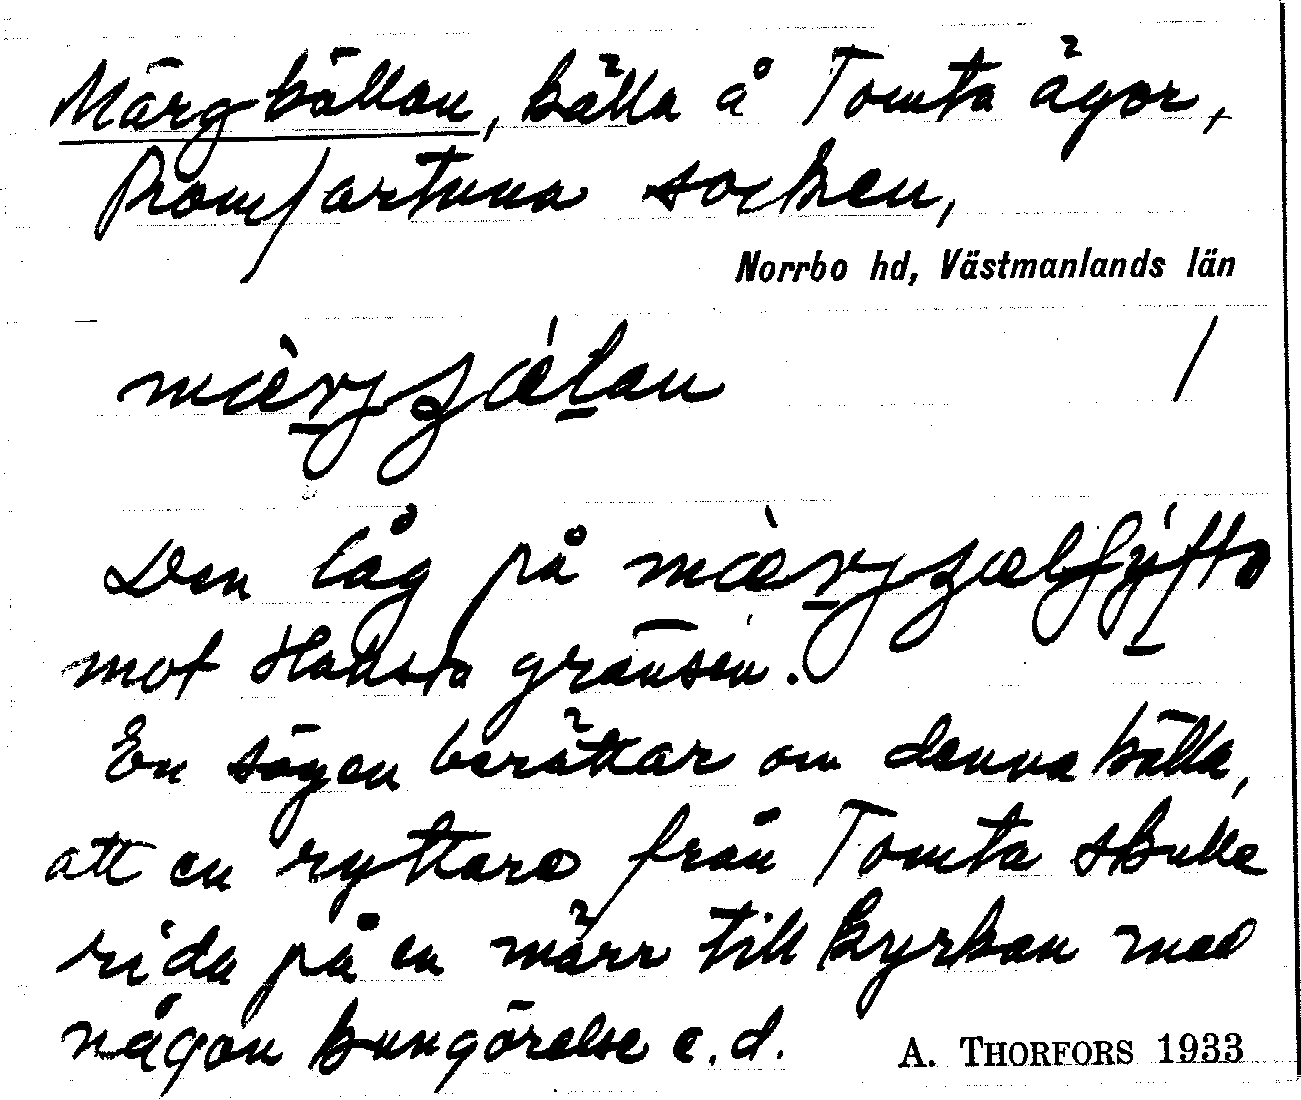 Märgkällan, källa å Tomta ägor,
Romfartuna socken,
Norrbo hd, Västmanlands län
Den låg på
mot Hansta gränsen.
En sägen berättar om denna källa,
att en ryttare från Tomta skulle
rida på en märr till kyrkan med
någon kungörelse e.d.
A. THORFORS 1933